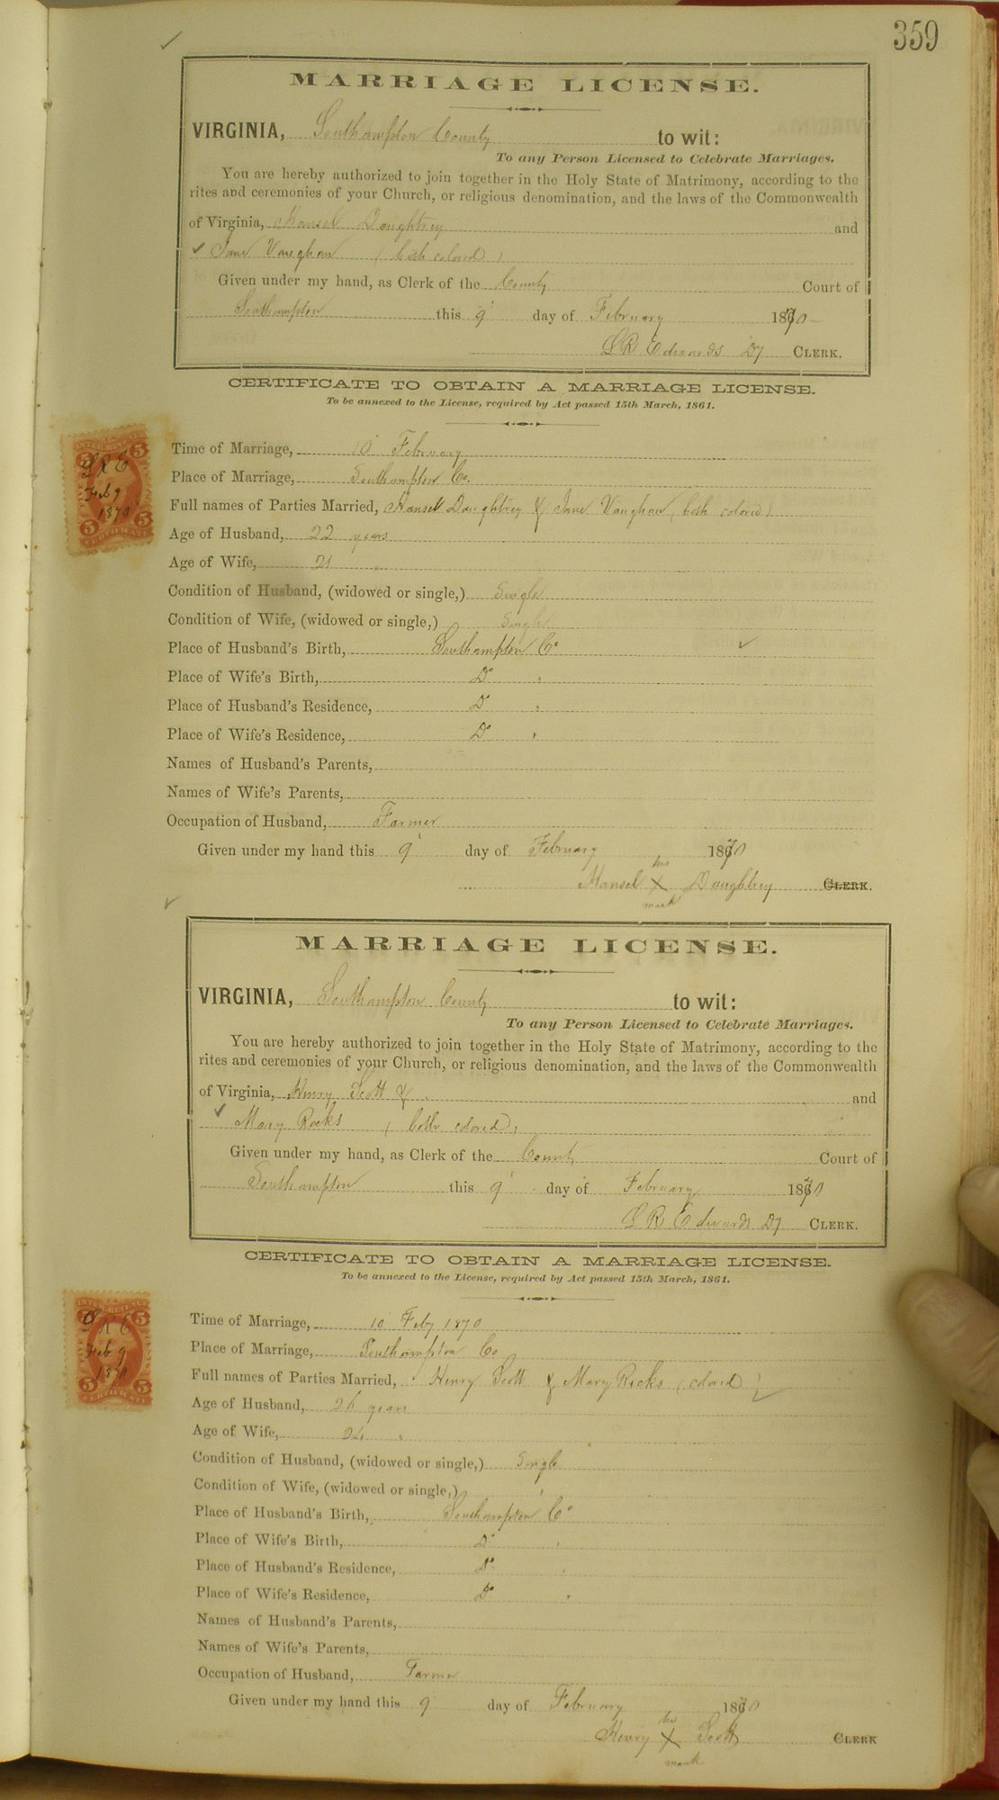 359
MARRIAGE LICENSE.
VIRGINIA, Southampton County to wit:
To any Person Licensed to Celebrate Marriages.
You are hereby authorized to join together in the Holy State of Matrimony, according to the
rites and ceremonies of your Church, or religious denomination, and the laws of the Commonwealth
of Virginia, Mansel Daughtrey and
Jane Vaughan (both colored)
Given under my hand, as Clerk of the County Court of
Southampton this 9 day of February 1870
L R Edwards Dy CLERK.
CERTIFICATE TO OBTAIN A MARRIAGE LICENSE.
To be annexed to the License, required by Act passed 15th March, 1861.
Time of Marriage, 10 February
Place of Marriage, Southampton Co.
Full names of Parties Married, Mansel Daughtrey & Jane Vaughan (both colored)
Age of Husband, 22 years
Age of Wife, 21 "
Condition of Husband, (widowed or single,) Single
Condition of Wife, (widowed or single,) Single
Place of Husband's Birth, Southampton Co
Place of Wife's Birth, Do "
Place of Husband's Residence, Do "
Place of Wife's Residence, Do "
Names of Husband's Parents,
Names of Wife's Parents,
Occupation of Husband, Farmer
Given under my hand this 9 day of February 1870
Mansel his X mark Daughtrey CLERK.
5 5
L R E
Feb 9
1870
5 5
CERTIFICATE
MARRIAGE LICENSE.
VIRGINIA, Southampton County to wit:
To any Person Licensed to Celebrate Marriages.
You are hereby authorized to join together in the Holy State of Matrimony, according to the
rites and ceremonies of your Church, or religious denomination, and the laws of the Commonwealth
of Virginia, Henry Scott & and
Mary Ricks (both colored)
Given under my hand, as Clerk of the County Court of
Southampton this 9 day of February 1870
L R Edwards Dy CLERK.
CERTIFICATE TO OBTAIN A MARRIAGE LICENSE.
To be annexed to the License, required by Act passed 15th March, 1861.
Time of Marriage, 10 Feby 1870
Place of Marriage, Southampton Co
Full names of Parties Married, Henry Scott & Mary Ricks (colored)
Age of Husband, 26 years
Age of Wife, "
Condition of Husband, (widowed or single,) Single
Condition of Wife, (widowed or single,) "
Place of Husband's Birth, Southampton Co
Place of Wife's Birth, Do "
Place of Husband's Residence, Do "
Place of Wife's Residence, Do "
Names of Husband's Parents,
Names of Wife's Parents,
Occupation of Husband, Farmer
Given under my hand this 9 day of February 1870
Henry his X mark Scott CLERK
5 5
L R E
Feb 9
1870
5 5
CERTIFICATE